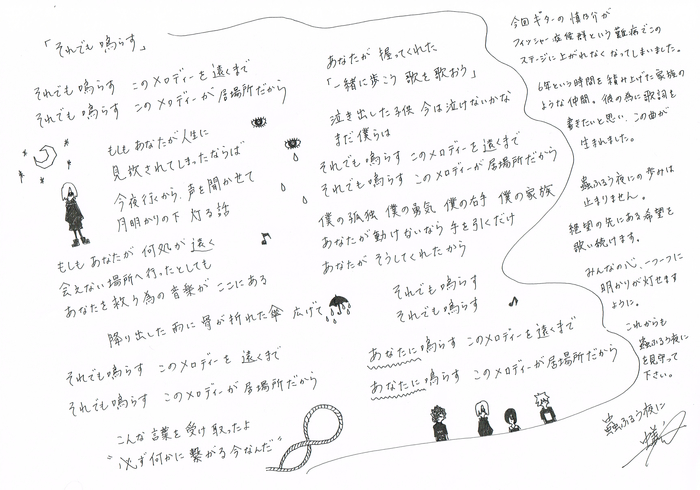 「それでも鳴らす」
それでも鳴らす このメロディーを遠くまで
それでも鳴らす このメロディーが居場所だから
もしもあなたが人生に
見放されてしまったならば
今夜行くから、声を聞かせて
月明かりの下 灯る話
もしもあなたが何処か遠く
会えない場所へ行ったとしても
あなたを救う為の音楽がここにある
降り出した雨に骨が折れた傘 広げて
それでも鳴らす このメロディーを 遠くまで
それでも鳴らす このメロディーが居場所だから
こんな言葉を受け取ったよ
"必ず何かに繋がる今なんだ"
あなたが握ってくれた
「一緒に歩こう 歌を歌おう」
泣き出した子供 今は泣けないかな
まだ僕らは
それでも鳴らす このメロディーを遠くまで
それでも鳴らす このメロディーが居場所だから
僕の孤独 僕の勇気 僕の右手 僕の家族
あなたが動けないなら 手を引くだけ
あなたが そうしてくれたから
それでも鳴らす
それでも鳴らす
あなたに鳴らす このメロディーを遠くまで
あなたに鳴らす このメロディーが居場所だから
今回ギターの慎乃介が
フィッシャー症候群という難病でこの
ステージに上がれなくなってしまいました。
6年という時間を積み上げた家族の
ような仲間。彼の為に歌詞を
書きたいと思い、この曲が
生まれました。
蟲ふるう夜にの歩みは
止まりません。
絶望の先にある希望を
歌い続けます。
みんなの心、一つ一つに
明かりが灯せます
ように。
これからも
蟲ふるう夜に
を見守って
下さい。
蟲ふるう夜に